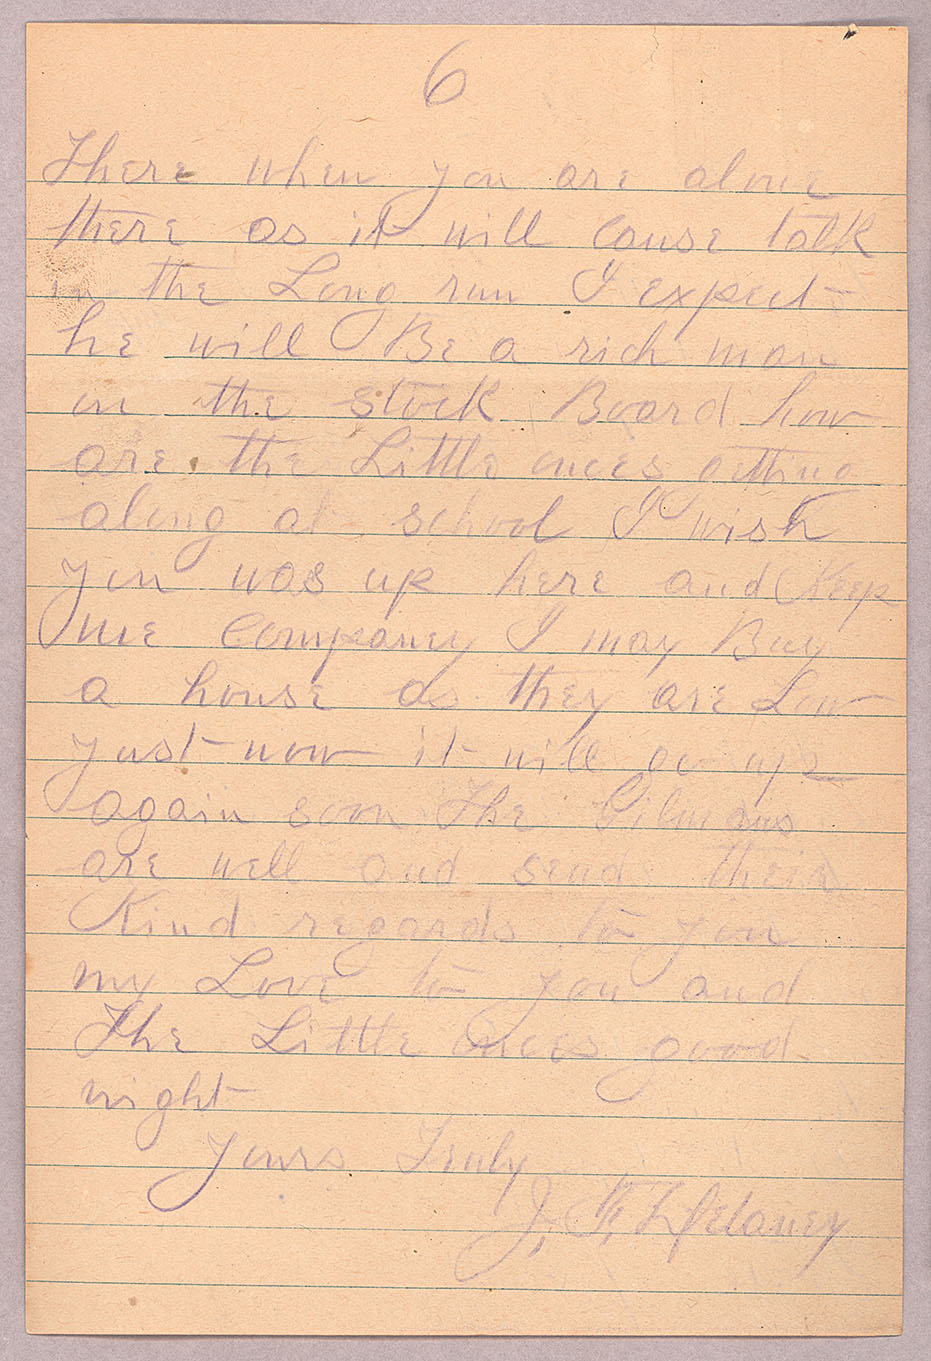 6
There when you are alone
there as it will cause talk
in the Long run I expect
he will Be a rich man
in the stock Board how
are the Little onces getting
along at school I wish
you was up here and Keep
me Companey I may Buy
a house as they are Low
just now it will go up
again soon The
are well and send their
Kind regards to you
my Love to you and
The Little onces good
night
Yours Truly
J. F. Delaney